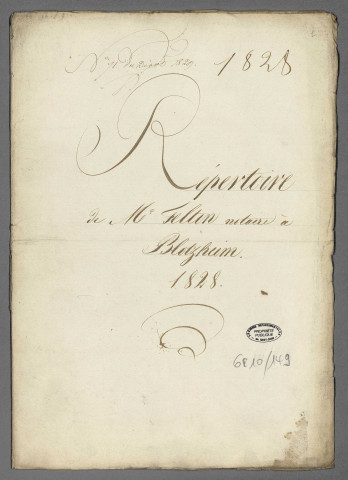 1828
Répertoire
de Me Feltin notaire à
Blotzheim.
1828.
PROPRIÉTÉ
PUBLIQUE
6E10/149